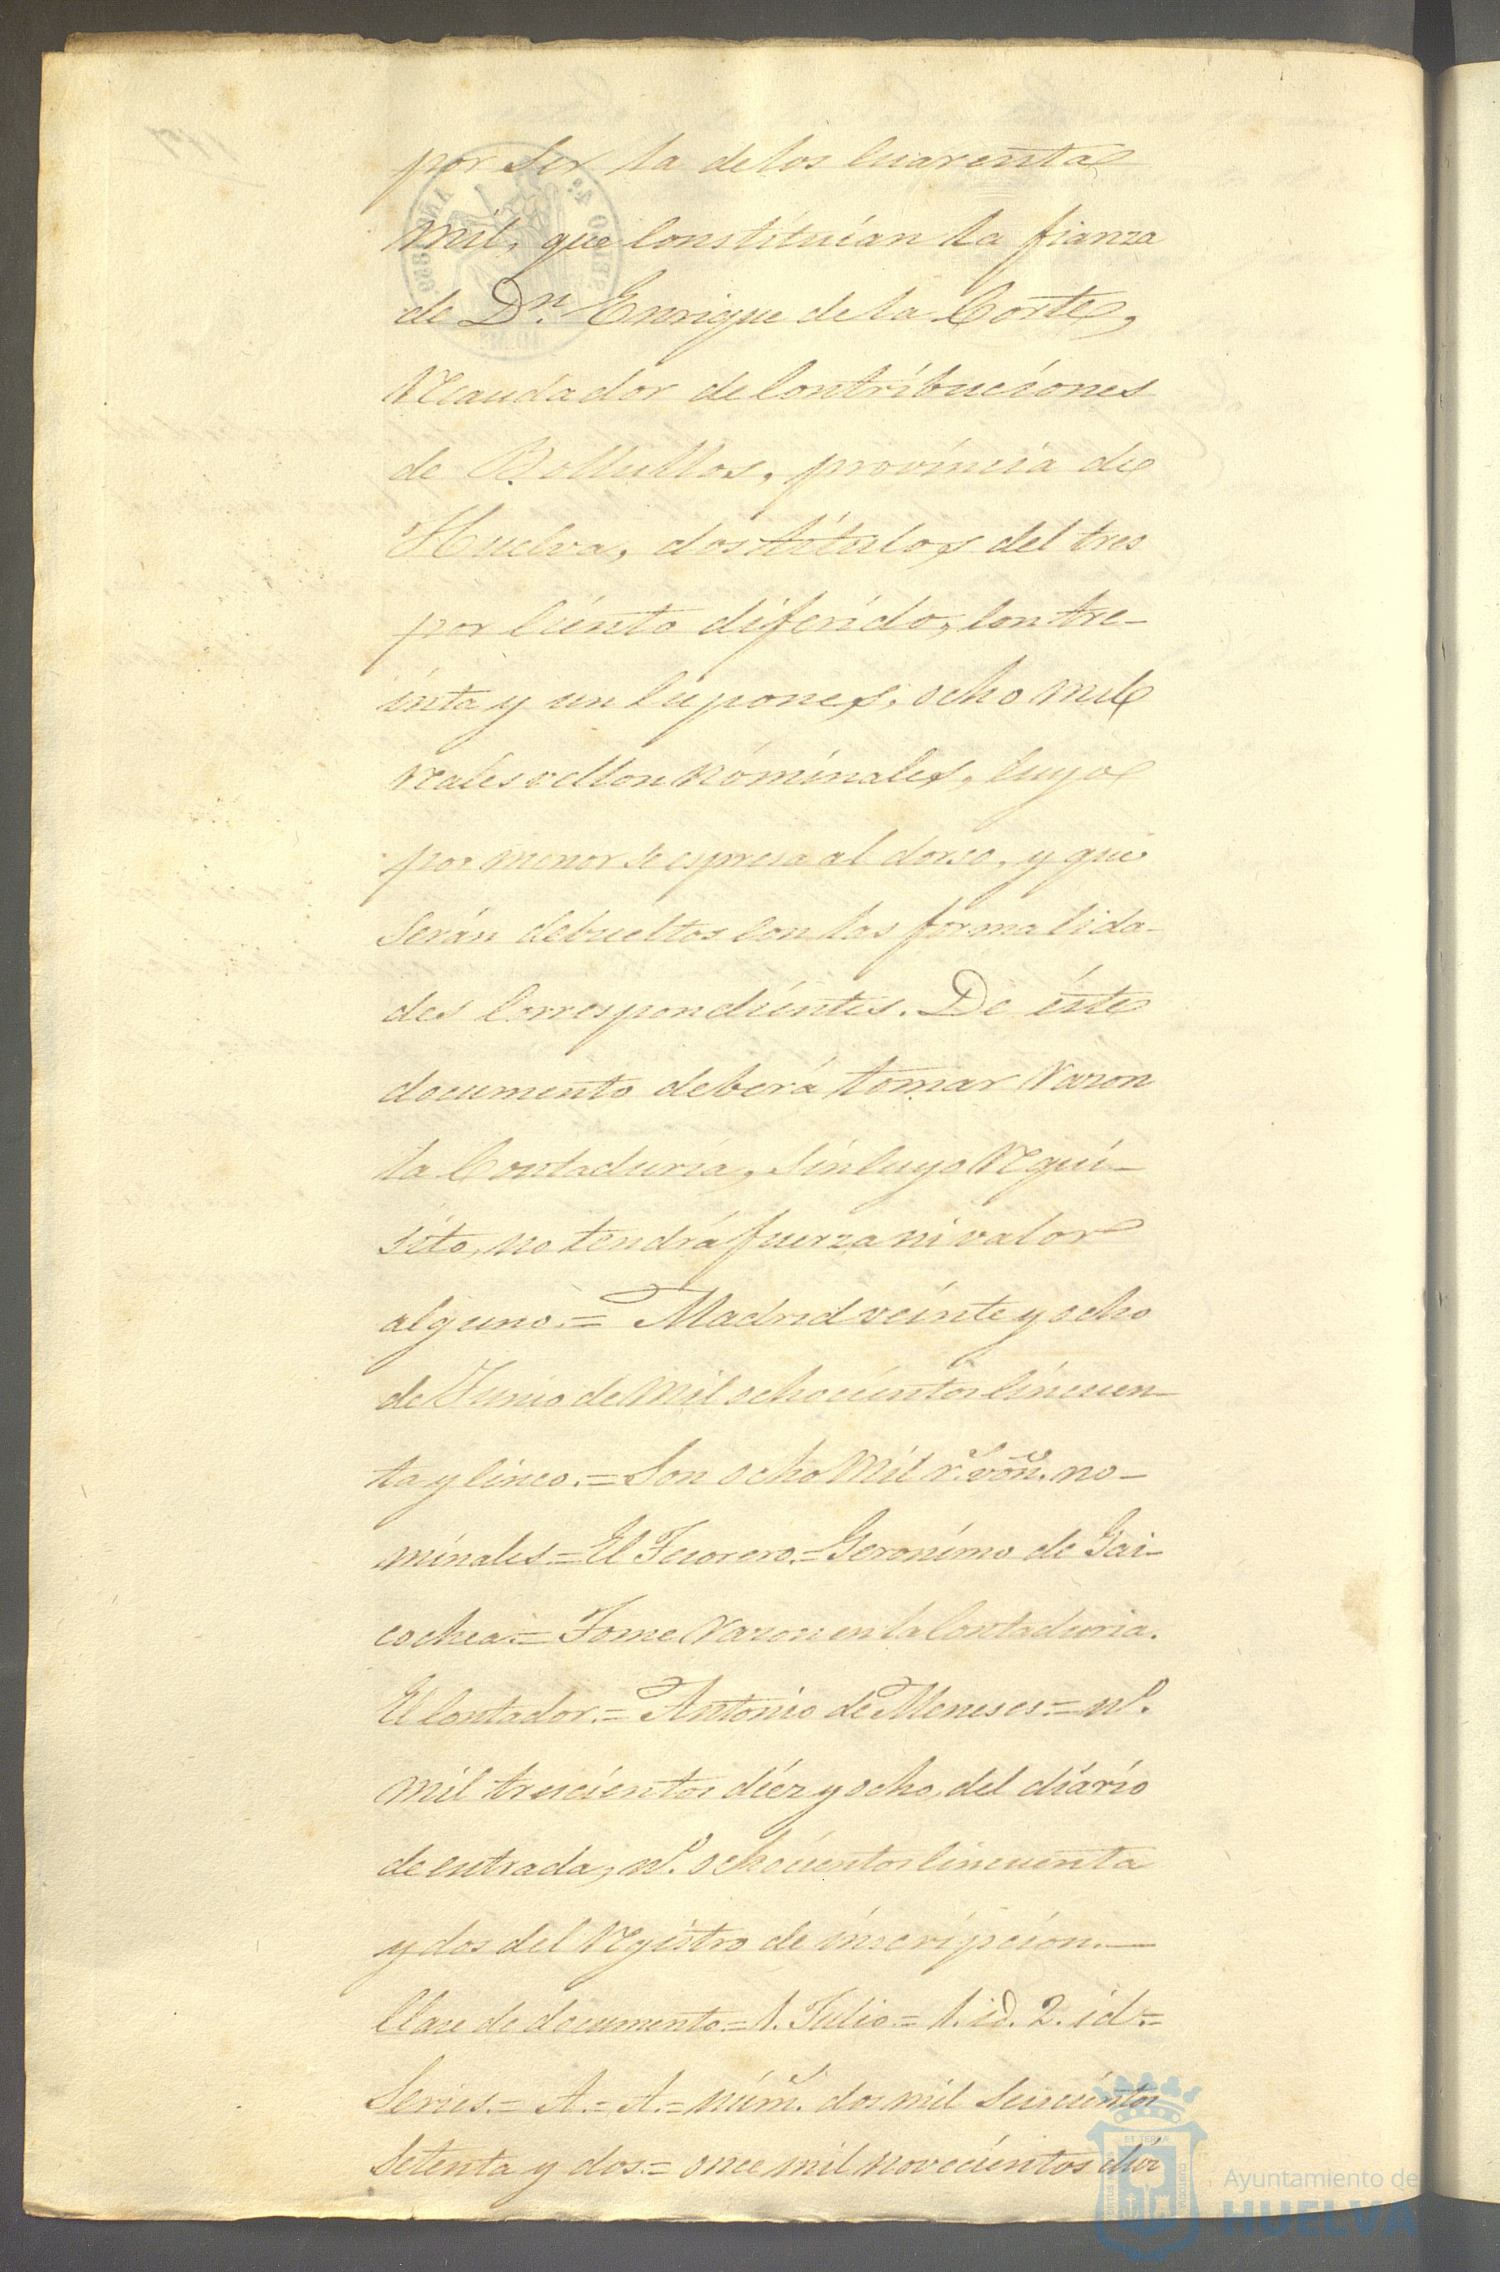 por ser la de los cuarenta
mil, que constituian la fianza
de Dn. Enrique de la Corte,
recaudador de contribuciones
de Bollullos, provincia de
Huelva, dos titulos del tres
por ciento diferido, con tre-
inta y un cupones, ocho mil
reales vellon nominales, cuyo
por menor se espresa al dorso, y que
serán debueltos con las formalida-
des correspondientes. De éste
documento deberá tomar razon
la Contaduria, sin cuyo requi-
sito, no tendrá fuerza ni valor
alguno.= Madrid veinte y ocho
de Junio de mil ochocientos cincuen-
ta y cinco.= Son ocho mil rs. von. no-
minales= El Tesorero.= Geronimo de Gai-
cochea= Tome razon en la Contaduria.
El Contador.= Antonio de Meneses.= no.
mil trescientos diez y ocho, del diário
de entrada, no. ochocientos cincuenta
y dos del registro de inscripcion.—
Clase de documento= 1. Julio= 1. id. 2. id=
Series= A.= A.= núms. dos mil seiscientos
setenta y dos.= once mil novecientos diez
SELLO 4º
Ayuntamiento de
HUELVA